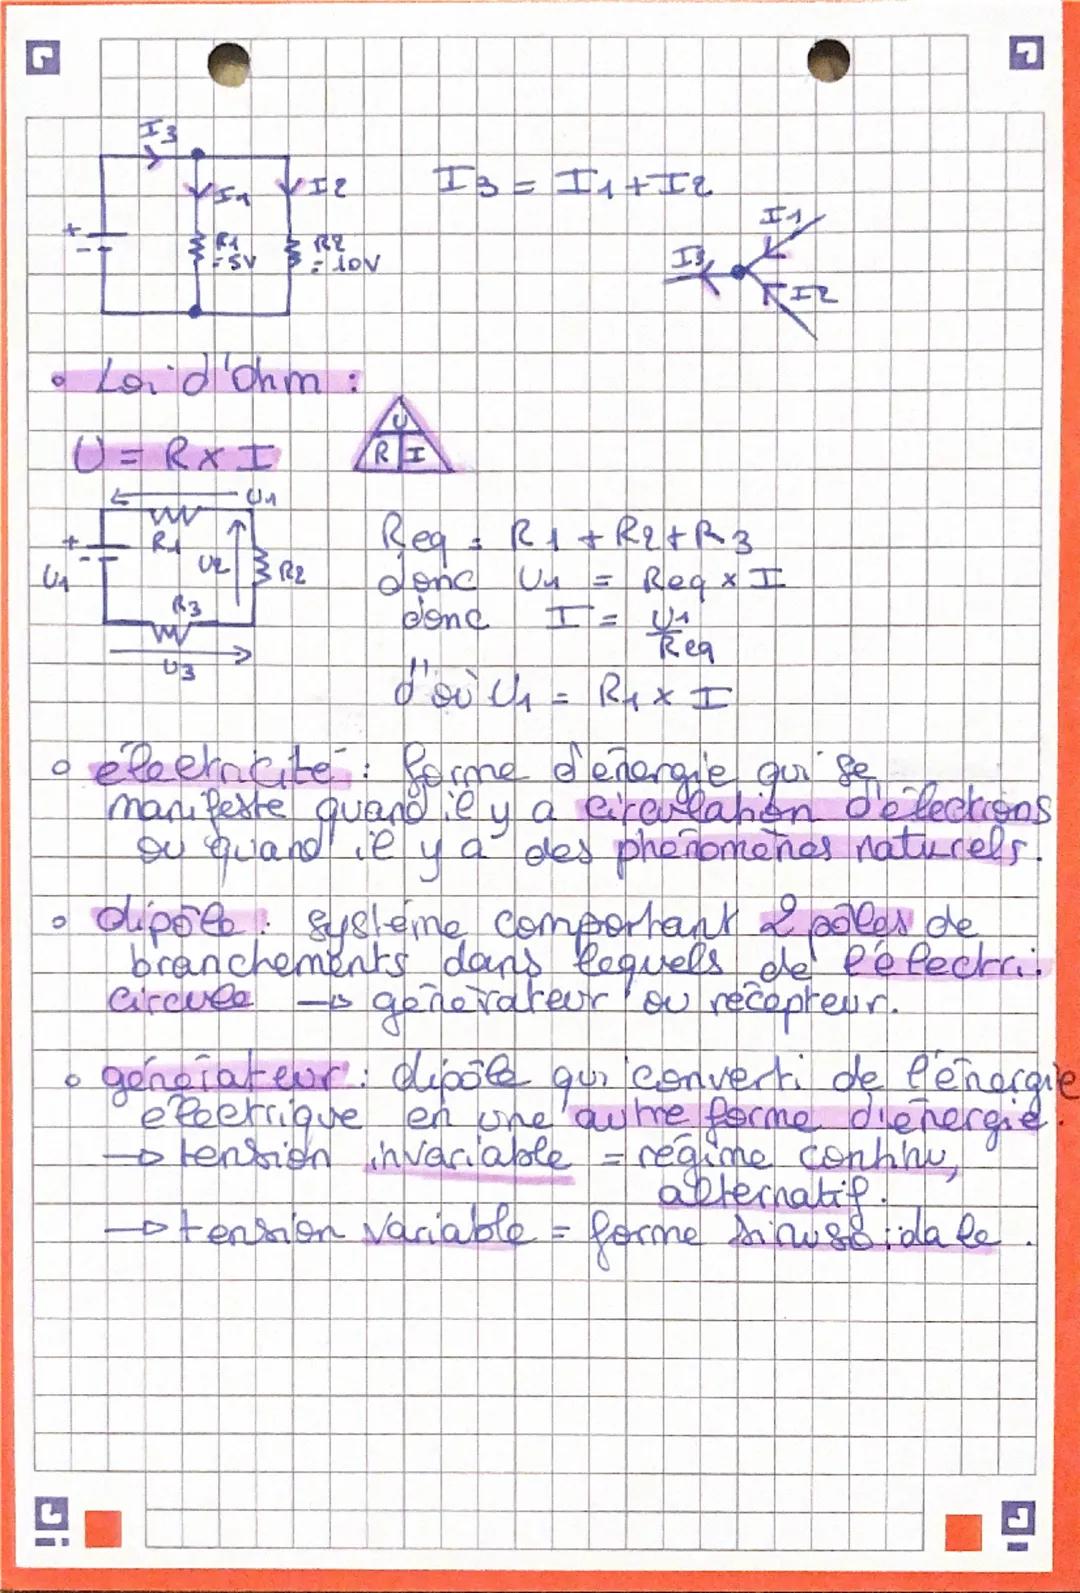 I3
I1
I2
I3 = I1 + I2
+
-
R1
= 5V
R2
= 10V
I1
I3
I2
• Loi d'Ohm :
U = R x I
U
R I
U1
R1
+
-
U1
U2
R2
R3
U3
Req = R1 + R2 + R3
donc U1 = Req x I
donc I = U1
Req
d'où U1 = R1 x I
• électricité : forme d'énergie qui se
manifeste quand il y a circulation d'élections
ou quand il y a des phénomènes naturels.
• dipôle : système comportant 2 pôles de
branchements dans lequels de l'électri.
circule → générateur ou récepteur.
• générateur : dipôle qui converti de l'énergie
électrique en une autre forme d'énergie.
→ tension invariable = régime continu,
alternatif.
→ tension variable = forme sinusoïdale.